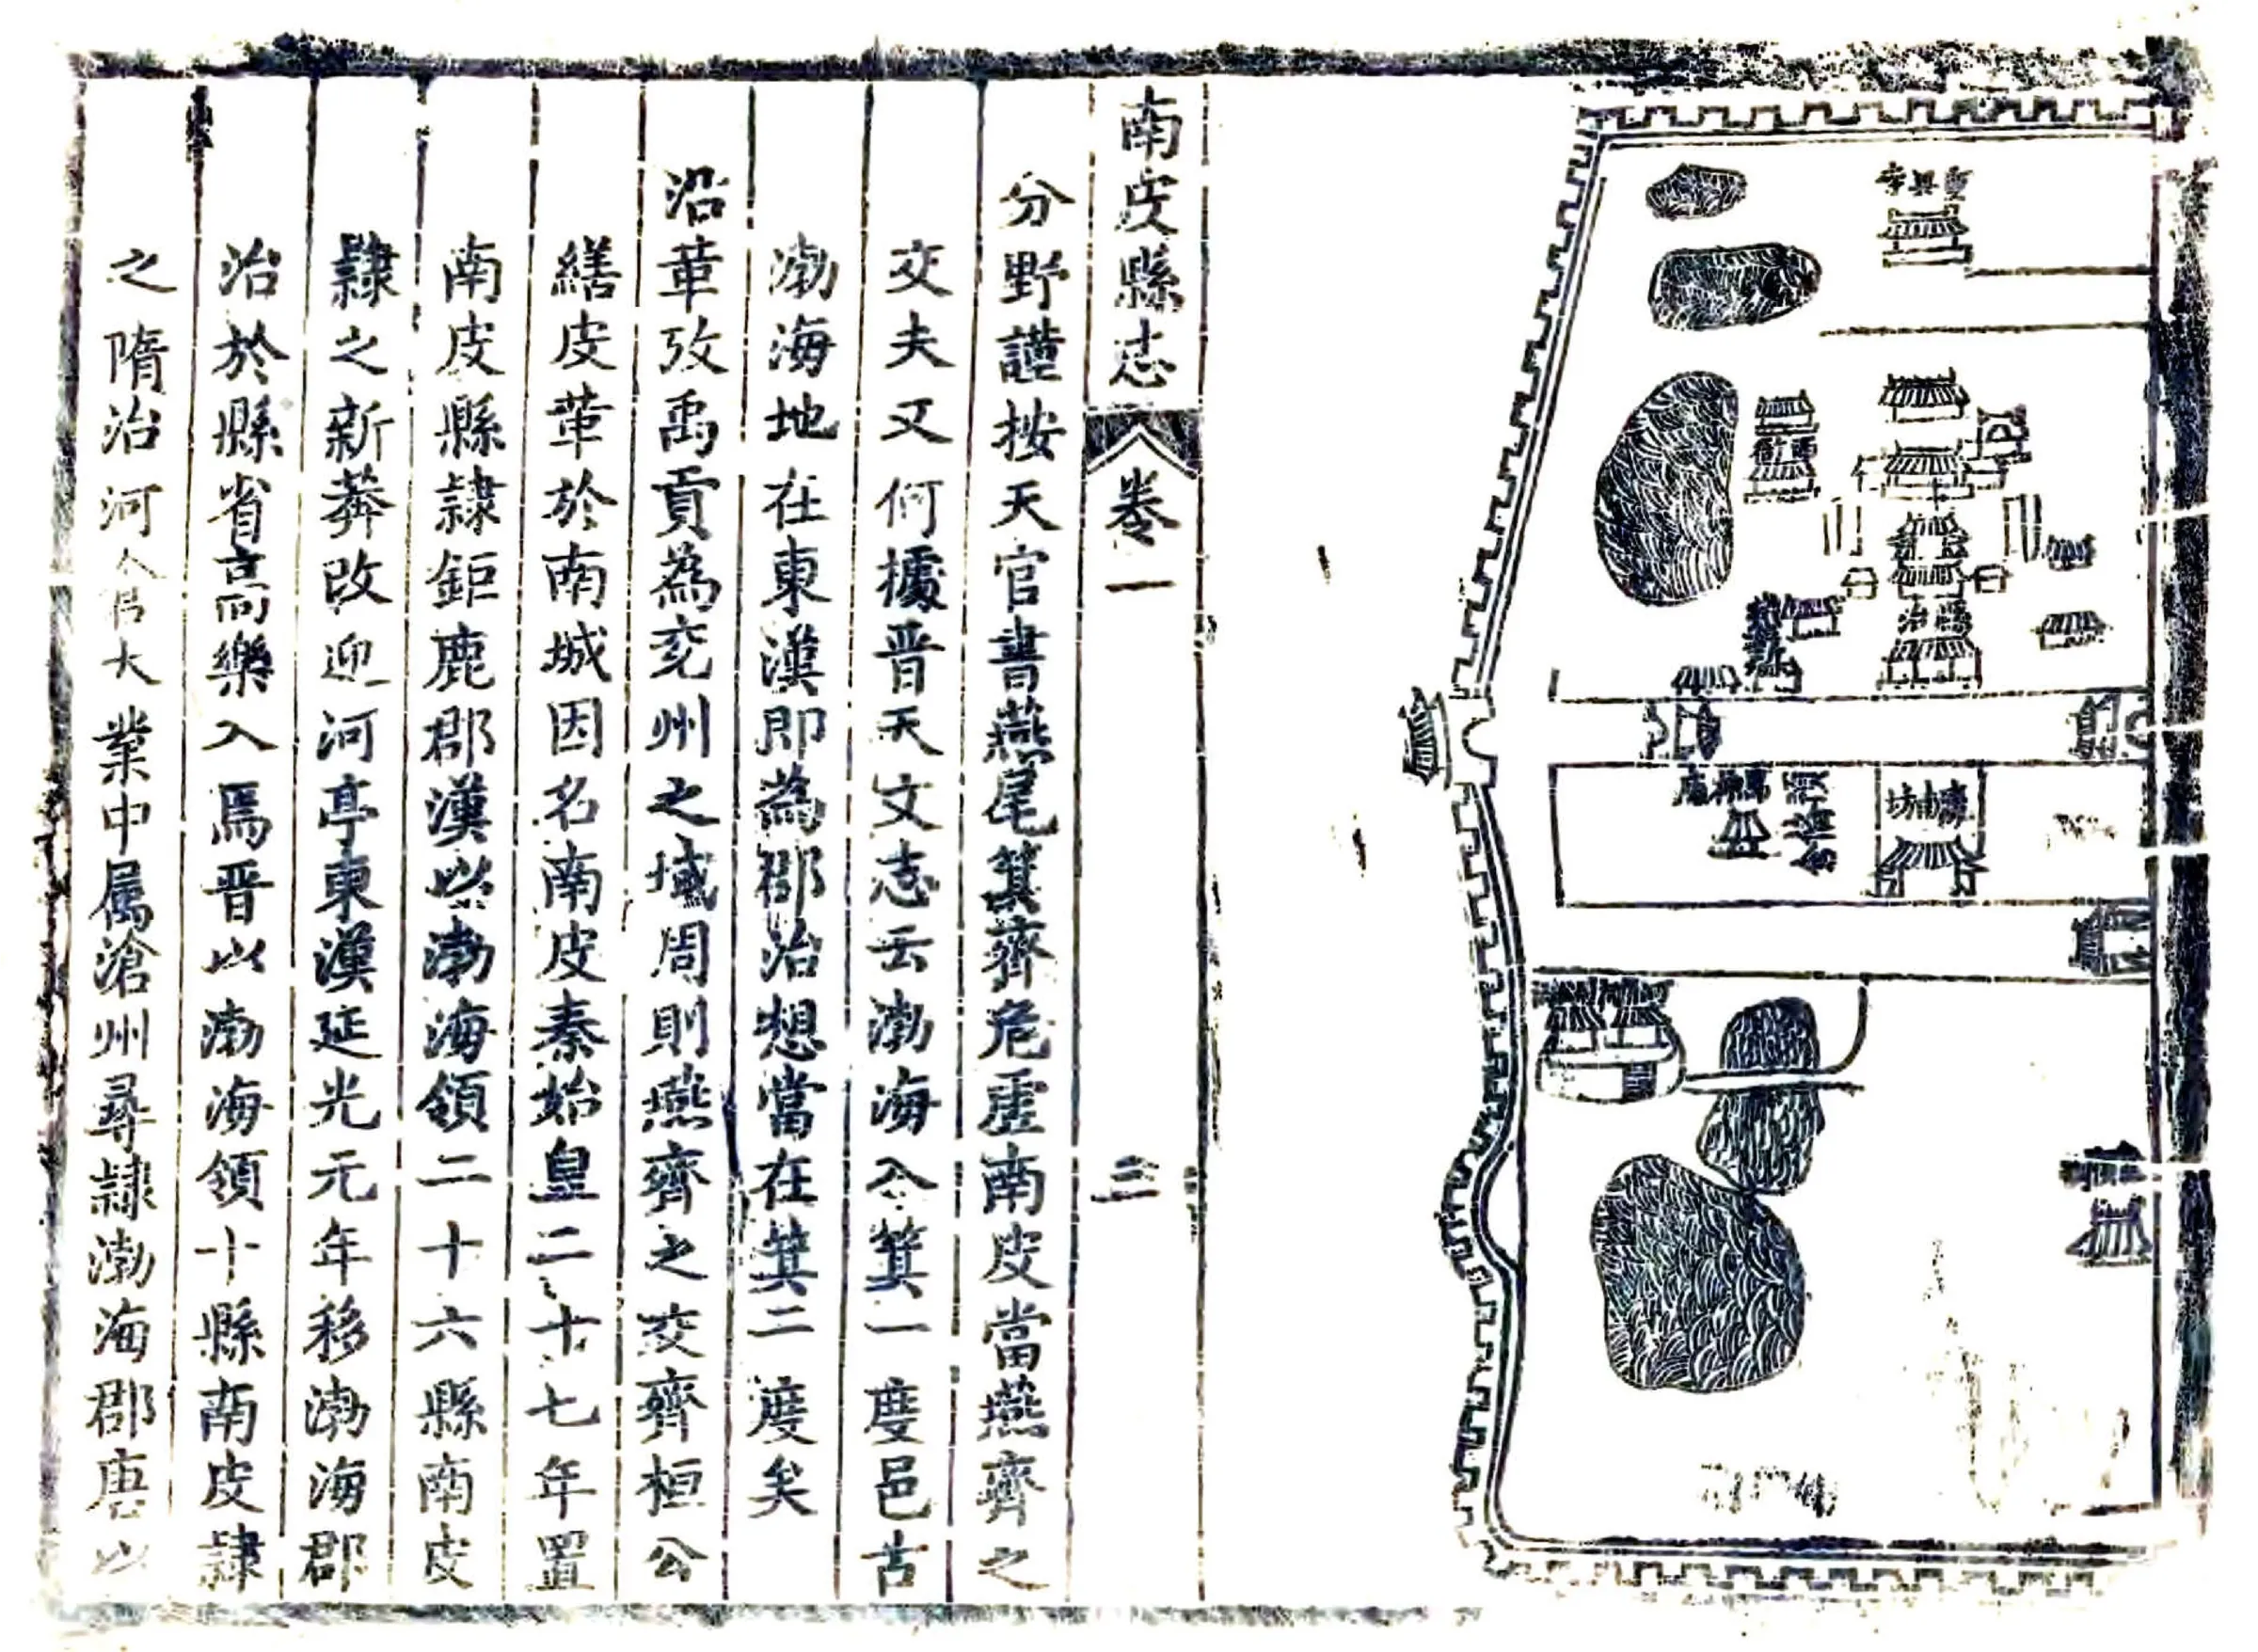 縣治
南皮縣志
卷一
三
分野謹按天官書燕尾箕齊危虛南皮當燕齊之
交夫又何據晋天文志云渤海入箕一度邑古
渤海地在東漢即為郡治想當在箕二度矣
沿革攷禹貢為兖州之域周則燕齊之交齊桓公
繕皮革於南城因名南皮秦始皇二十七年置
南皮縣隷鉅鹿郡漢以渤海領二十六縣南皮
隷之新莽改迎河亭東漢延光元年移渤海郡
治於縣省高樂入焉晋以渤海領十縣南皮隷
之隋治河大業中属滄州尋隷渤海郡唐以